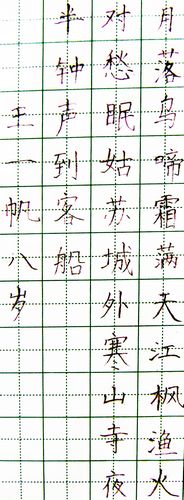 月落乌啼霜满天江枫渔火
对愁眠姑苏城外寒山寺夜
半钟声到客船
王一帆八岁